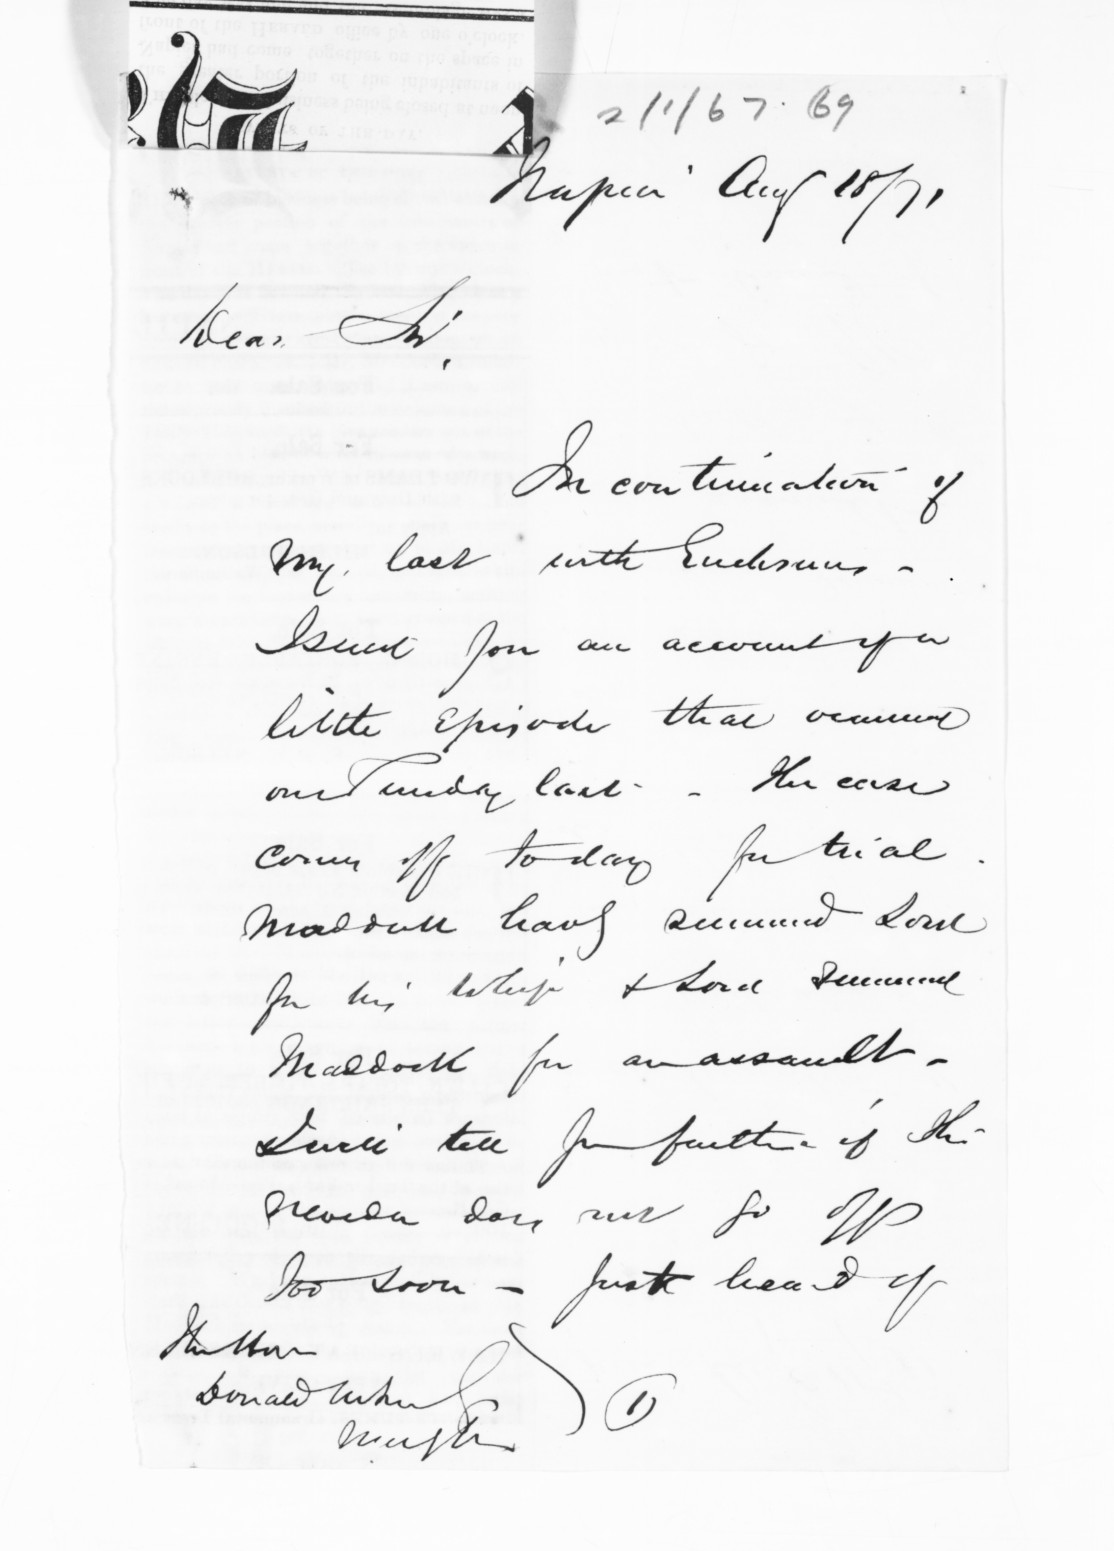 2/1/67. 69
Napier Aug 18/71
Dear Sir,
In continuation of
my last with Enclosures -
I send you an account of a
little Episode that occurred
on Tuesday last - The case
comes off today for trial.
Maddock havg summoned Lord
for his Whip & Lord summoned
Maddock for an assault -
I will tell you further if the
Nevada does not go off
too soon - Just heard of
The Hon
Donald McLean
1